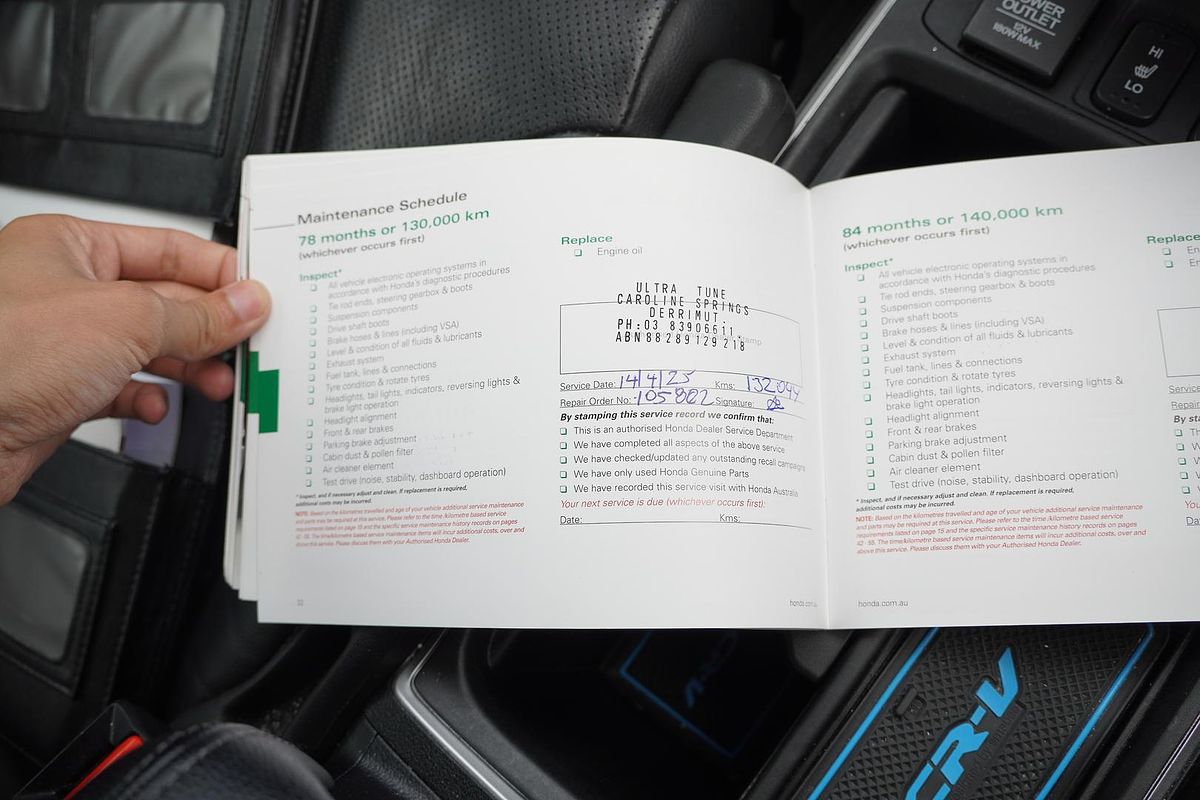 POWER
OUTLET
12V
180W MAX
HI
LO
Maintenance Schedule
78 months or 130,000 km
(whichever occurs first)
Inspect*
All vehicle electronic operating systems in
accordance with Honda's diagnostic procedures
Tie rod ends, steering gearbox & boots
Suspension components
Drive shaft boots
Brake hoses & lines (including VSA)
Level & condition of all fluids & lubricants
Exhaust system
Fuel tank, lines & connections
Tyre condition & rotate tyres
Headlights, tail lights, indicators, reversing lights &
brake light operation
Headlight alignment
Front & rear brakes
Parking brake adjustment
Cabin dust & pollen filter
Air cleaner element
Test drive (noise, stability, dashboard operation)
* Inspect, and if necessary adjust and clean. If replacement is required,
additional costs may be incurred.
NOTE: Based on the kilometres travelled and age of your vehicle additional service maintenance
and parts may be required at this service. Please refer to the time /kilometre based service
requirements listed on page 15 and the specific service maintenance history records on pages
42 - 55. The time/kilometre based service maintenance items will incur additional costs, over and
above this service. Please discuss them with your Authorised Honda Dealer.
Replace
Engine oil
ULTRA TUNE
CAROLINE SPRINGS
DERRIMUT.
PH:03 83906611.
ABN 88 289 129 218
Service Date: 14/4/25 Kms: 132,044
Repair Order No: 105802 Signature:
By stamping this service record we confirm that:
This is an authorised Honda Dealer Service Department
We have completed all aspects of the above service
We have checked/updated any outstanding recall campaigns
We have only used Honda Genuine Parts
We have recorded this service visit with Honda Australia
Your next service is due (whichever occurs first):
Date: Kms:
32
honda.com.au
84 months or 140,000 km
(whichever occurs first)
Inspect*
All vehicle electronic operating systems in
accordance with Honda's diagnostic procedures
Tie rod ends, steering gearbox & boots
Suspension components
Drive shaft boots
Brake hoses & lines (including VSA)
Level & condition of all fluids & lubricants
Exhaust system
Fuel tank, lines & connections
Tyre condition & rotate tyres
Headlights, tail lights, indicators, reversing lights &
brake light operation
Headlight alignment
Front & rear brakes
Parking brake adjustment
Cabin dust & pollen filter
Air cleaner element
Test drive (noise, stability, dashboard operation)
* Inspect, and if necessary adjust and clean. If replacement is required,
additional costs may be incurred.
NOTE: Based on the kilometres travelled and age of your vehicle additional service maintenance
and parts may be required at this service. Please refer to the time /kilometre based service
requirements listed on page 15 and the specific service maintenance history records on pages
42 - 55. The time/kilometre based service maintenance items will incur additional costs, over and
above this service. Please discuss them with your Authorised Honda Dealer.
honda.com.au
Replace
CR-V